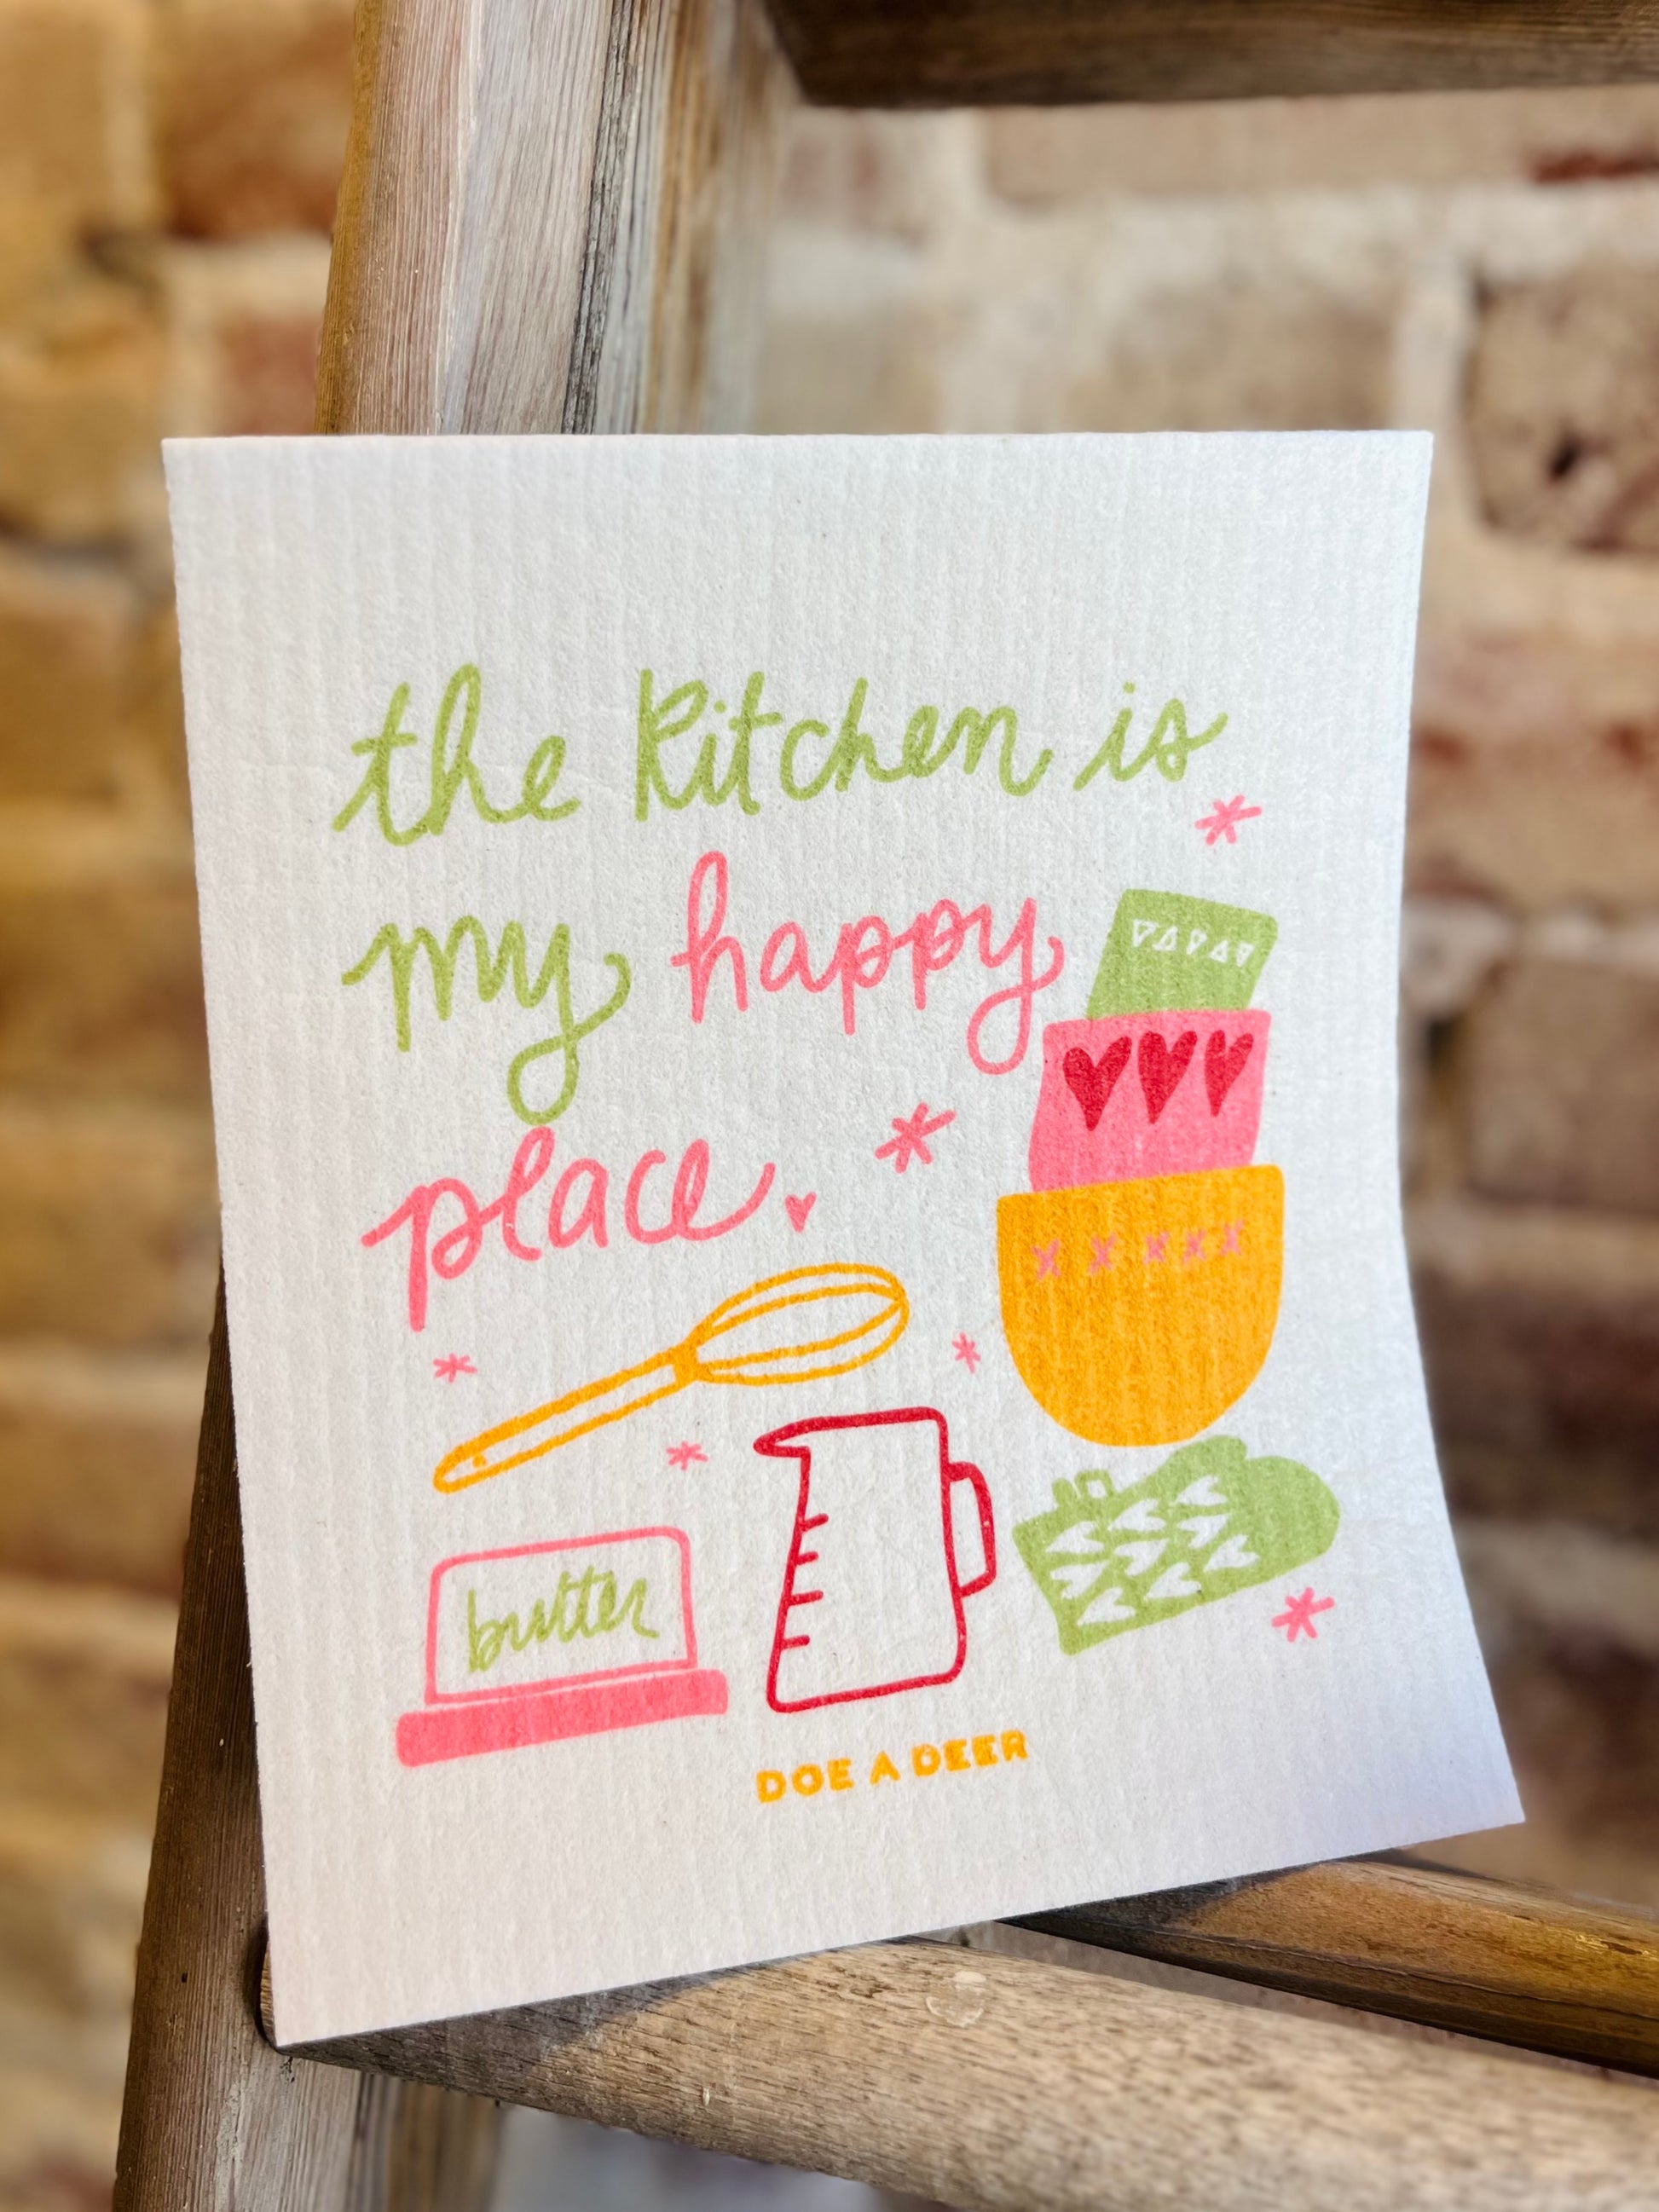 the kitchen is
my happy
place.
butter
DOE A DEER